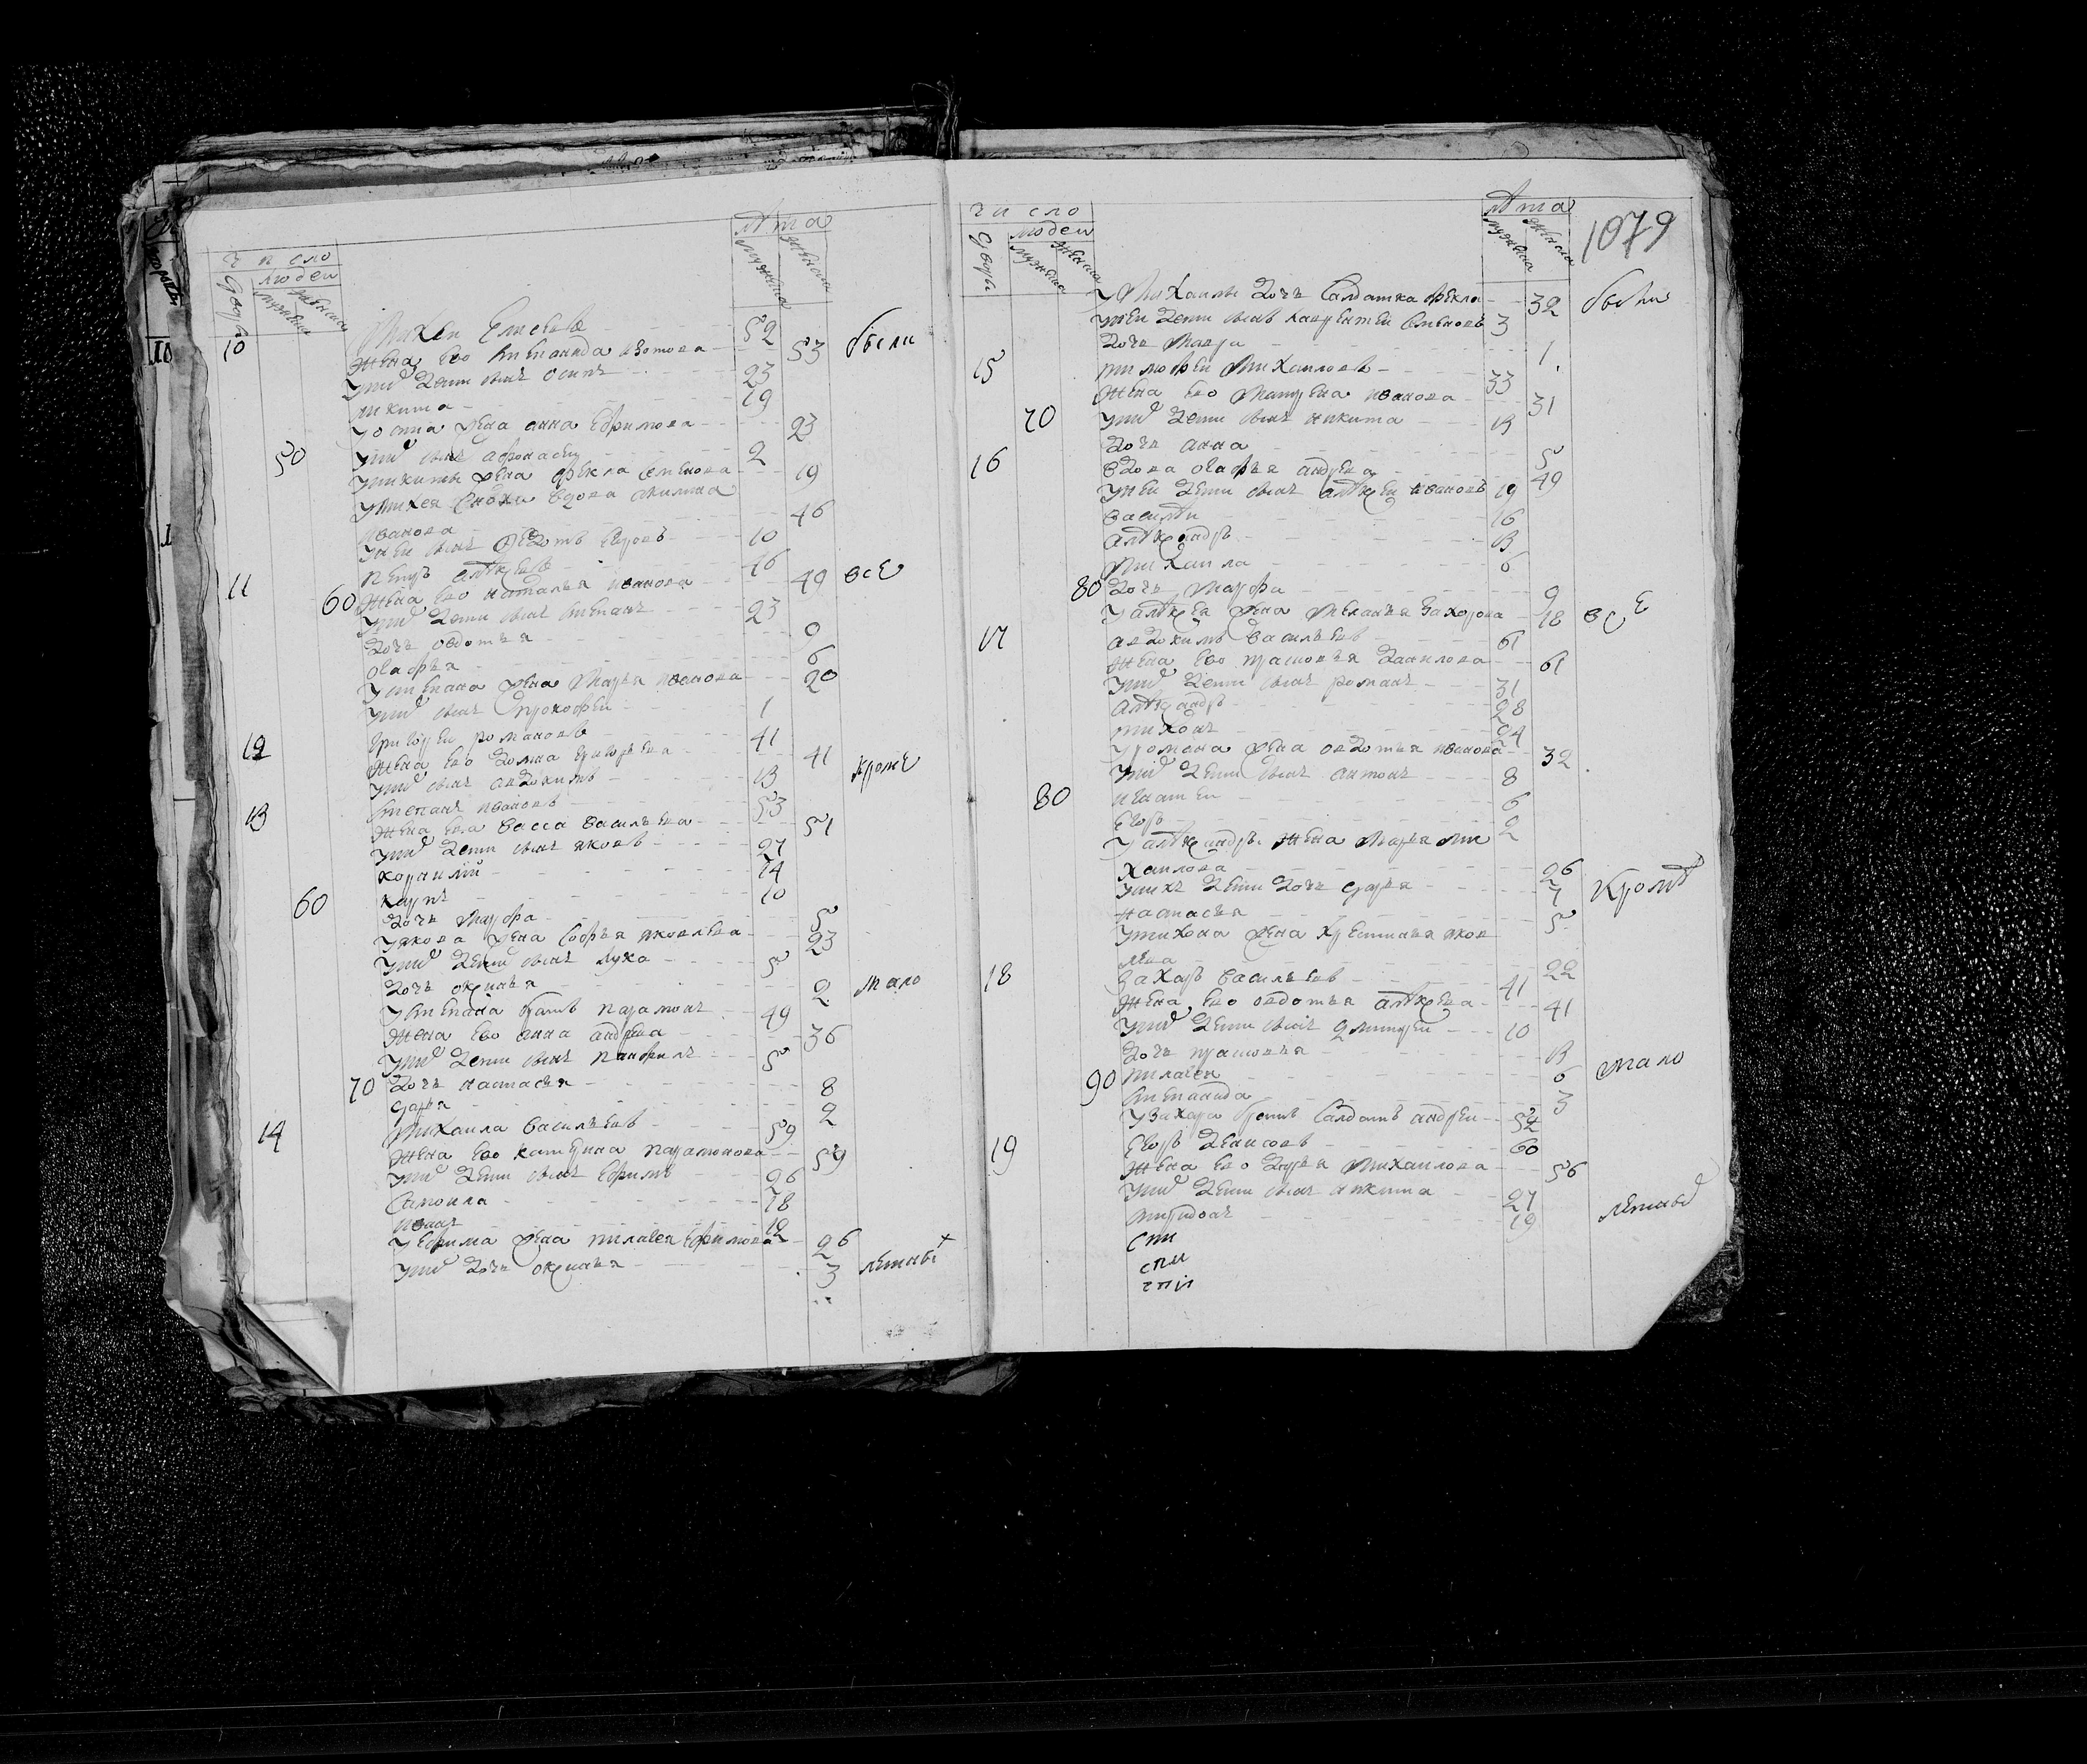 число
люди
лѣта
дворы
мужеска
женска
мужеска
женска
10
Михеи Елисѣевъ 52
жена ево Степанида Изотова 53 были
у них дети сынъ осипъ 23
никита 19
у осипа жена анна Ефримова 23
50
у них сынъ афонасеи 2
у никиты жена фекла семенова 19
у михея сноха вдова акилина
иванова 46
у неи сынъ федотъ Егоровъ 10
11
петръ алѣксеевъ 46
60 жена ево наталья иванова 49 все
у них дети сынъ степанъ 23
дочь овдотья 9
огафья 6
у степана жена марья иванова 20
у них сынъ прокофеи 1
12
григореи романовъ 41
жена ево домна григорьева 41
у них сынъ авдокимъ 13 кроме
13
степанъ ивановъ 53
жена ева васса васильева 51
у них дети сынъ яковъ 27
корнилии 14
60
карпъ 10
дочь марфа 5
у якова жена софья яковлева 23
у них дети сынъ лука 5
дочь оксинья 2 мало
у степана братъ парамонъ 49
жена ево анна андрева 36
у них дети сынъ панфилъ 5
70 дочь настасья 8
дарья 2
14
михаила васильевъ 59
жена ево катерина парамонова 59
у них дети сынъ Ефримъ 26
самоила 18
иванъ 12
у ефрима жена пилагея Ефимова 26
у них дочь оксинья 3 летныхъ
число
люди
лѣта
дворы
мужеска
женска
мужеска
женска
1079
у Михаилы дочь салдатка фекла 32 были
у неи дети сынъ лаврентеи семеновъ 3
дочь мавра 1
15
тимофеи михаиловъ 33
жена ево матрена иванова 31
70
у них дети сынъ никита 13
дочь анна 5
16
вдова огафья андрева 49
у неи дети сынъ алѣксеи ивановъ 19
василѣи 16
алѣксандръ 13
михаила 6
80 дочь марфа 9
у алѣксея жена меланья захорова 18 все
17
авдокимъ васильевъ 61
жена ево прасковья данилова 61
у них дети сынъ романъ 31
алѣксандръ 28
тихонъ 24
у романа жена овдотья иванова 32
у них дети сынъ антонъ 8
80
игнатеи 6
Егоръ 2
у алѣксандры жена марья ми
хаилова 26
у них дети дочь дарья 7 кромѣ
настасья 5
у тихона жена хрестинья яков
лева 22
18
захаръ васильевъ 41
жена ево овдотья алѣксева 41
у них дети сынъ дмитреи 10
дочь прасковья 13
90 пилагея 6 мало
степанида 3
у захара братъ салдатъ андреи 52
19
Егоръ денисовъ 60
жена ево дарья михаилова 56
у них дети сынъ никита 27
спиридонъ 19 летныхъ
спи
спи
спи